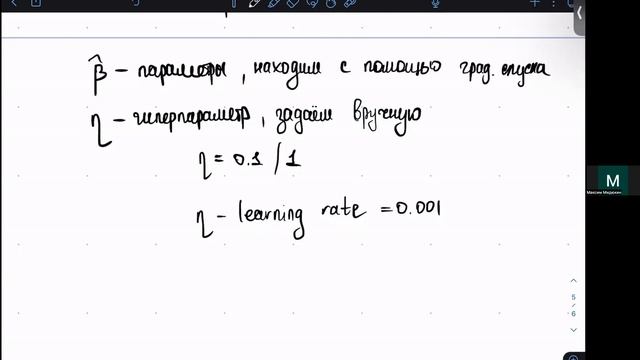 β̂ – параметры, находим с помощью град. спуска
η – гиперпараметр, задаём вручную
η = 0.1 / 1
η – learning rate = 0.001
M
5
/
6